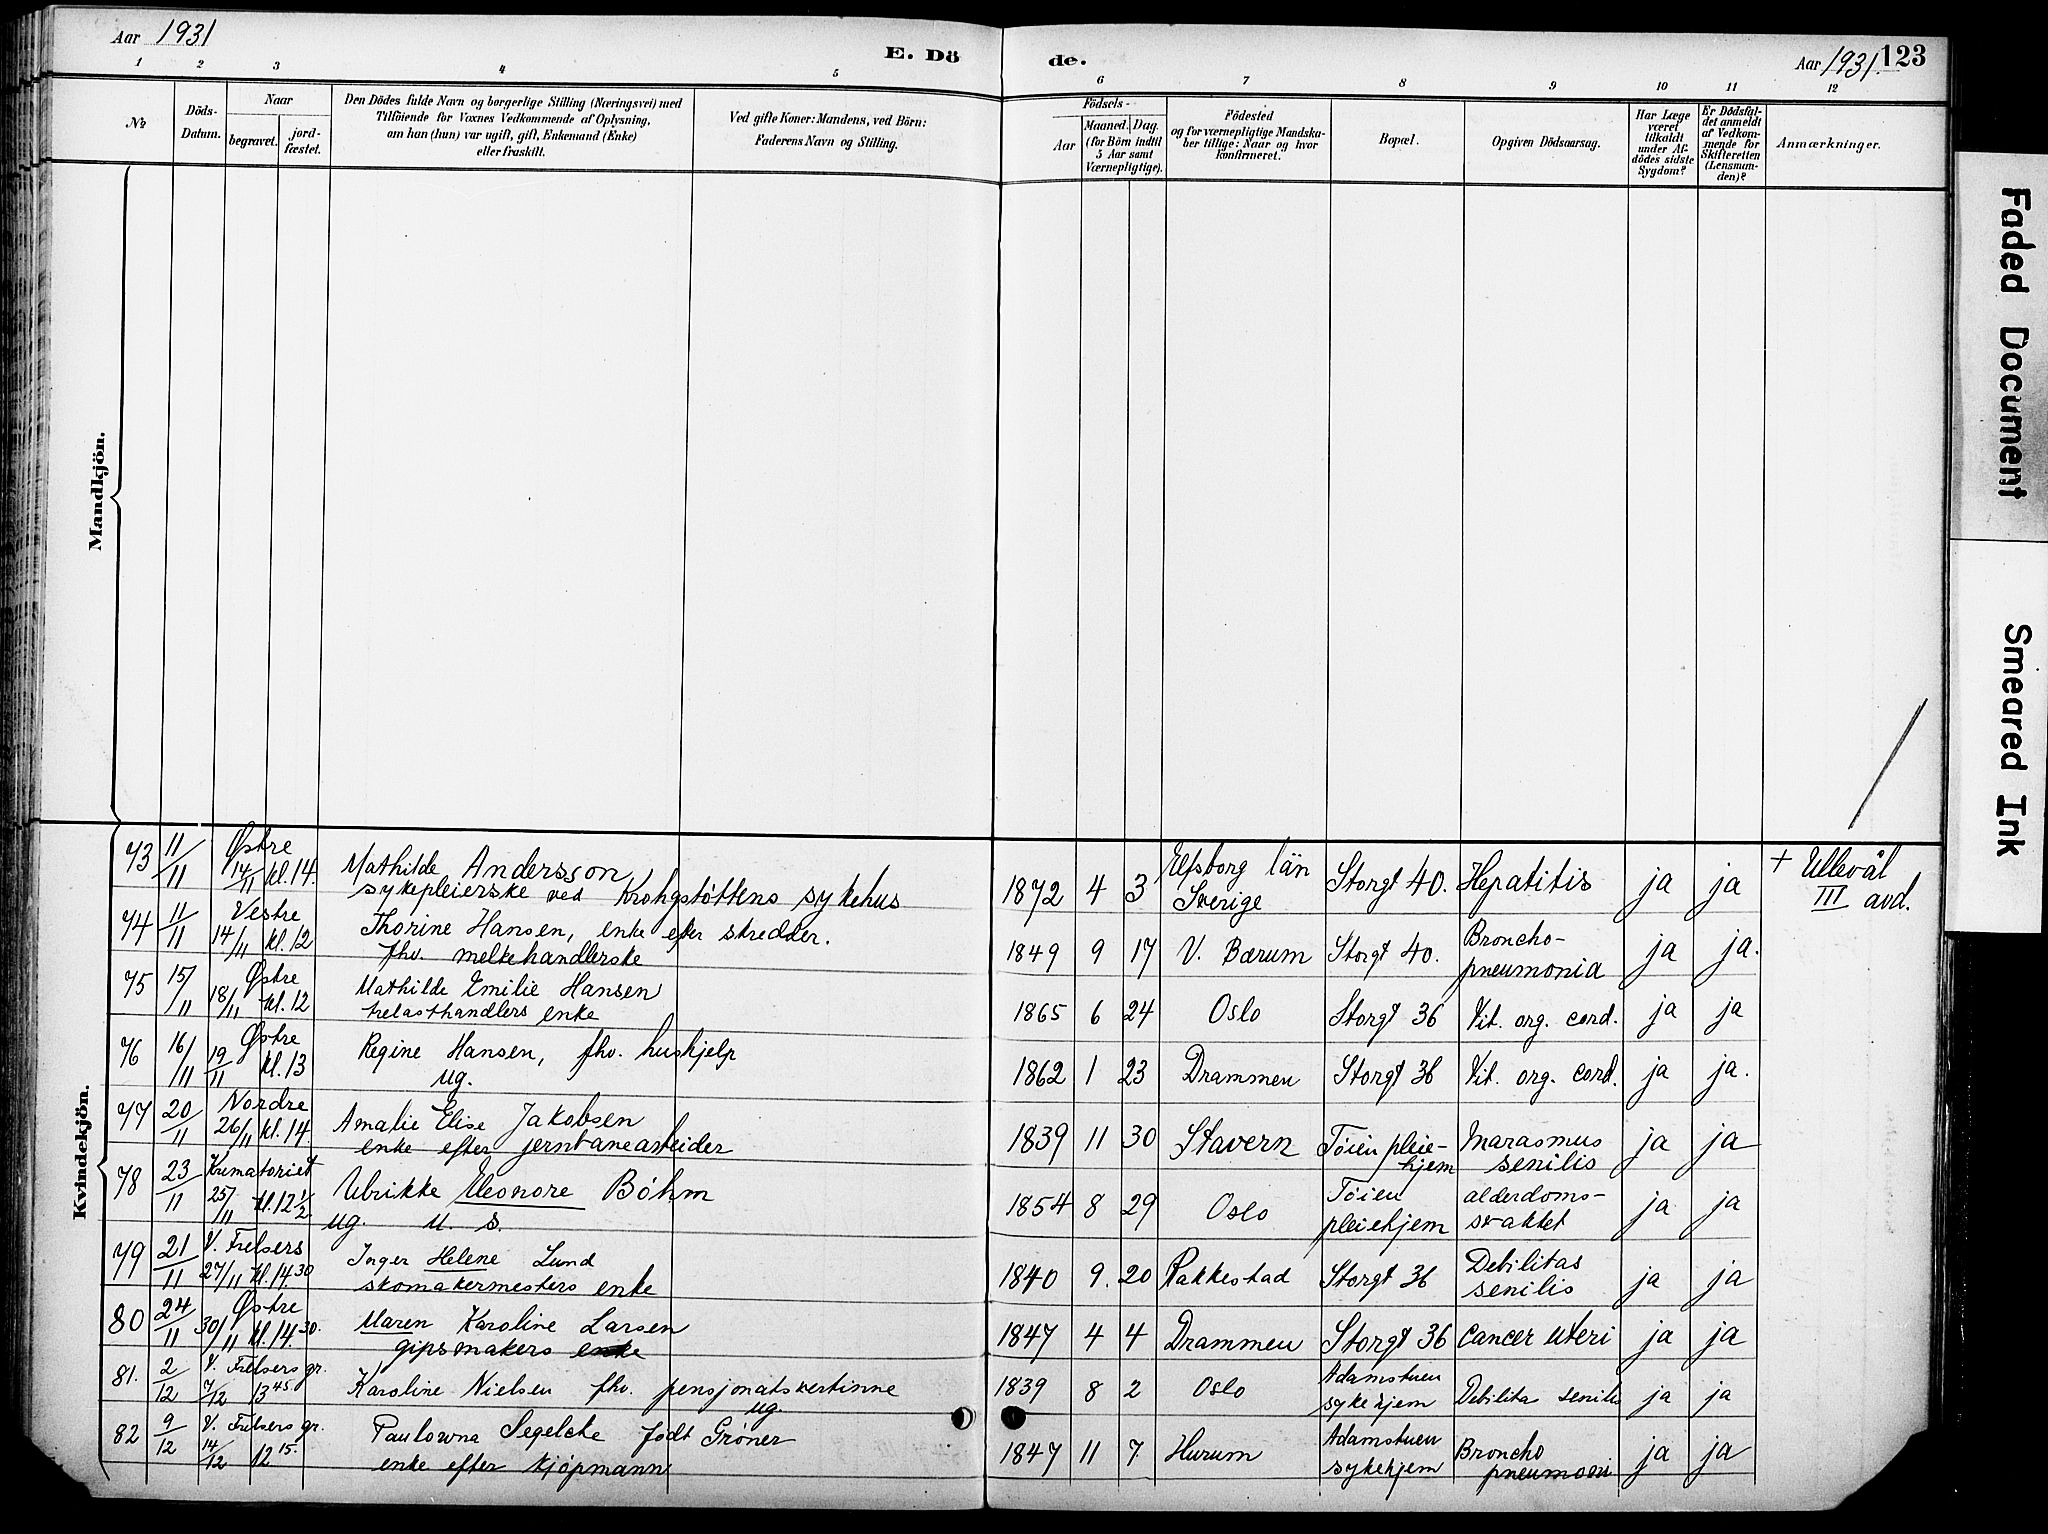 Aar 1931
E. Dö
de.
Aar 1931.
123
1 2 3 4 5 6 7 8 9 10 11 12
№
Döds-
Datum.
Naar
begravet.
jord-
fæstet.
Den Dödes fulde Navn og borgerlige Stilling (Næringsvei) med
Tilföiende for Voxnes Vedkommende af Oplysning,
om han (hun) var ugift, gift, Enkemand (Enke)
eller fraskilt.
Ved gifte Koner: Mandens, ved Börn:
Faderens Navn og Stilling.
Födsels-
Aar
Maaned. Dag.
(for Börn indtil
5 Aar samt
Værnepligtige).
Födested
og for værnepligtige Mandska-
ber tillige: Naar og hvor
konfirmeret.
Bopæl.
Opgiven Dödsaarsag.
Har Læge
været
tilkaldt
under Af-
dödes sidste
Sygdom?
Er Dödsfal-
det anmeldt
af Vedkom-
mende for
Skifteretten
(Lensman-
den)?
Anmærkninger.
Mandkjön.
Kvindekjön.
73 11/11 Østre 14/11 kl. 14. Mathilde Andersson,
sykepleierske ved Krohgstøttens sykehus
1872 4 3 Elfsborg län
Sverige
Storgt 40. Hepatitis ja ja + Ullevål
III avd.
74 11/11 Vestre 14/11 kl. 12 Thorine Hansen, enke efter skredder.
fhv. melkehandlerske
1849 9 17 V. Bærum Storgt 40. Broncho-
pneumonia
ja ja.
75 15/11 Østre 18/11 kl. 12 Mathilde Emilie Hansen
trelasthandlers enke
1865 6 24 Oslo Storgt 36 Vit. org. cord. ja ja
76 16/11 Østre 19/11 kl. 13 Regine Hansen, fhv. huskjelp
ug.
1862 1 23 Drammen Storgt 36 Vit. org. cord. ja ja.
77 20/11 Nordre 26/11 kl. 14. Amalie Elise Jakobsen
enke efter jernbanearbeider
1839 11 30 Stavern Tøien pleie-
hjem
Marasmus
senilis
ja ja
78 23/11 Krematoriet 25/11 kl. 12 1/2 Ulrikke Eleonore Bøhm
ug. u. s.
1854 8 29 Oslo Tøien
pleiehjem
alderdoms-
svakhet
ja ja
79 21/11 V. Frelsers 27/11 kl. 14.30 Inger Helene Lund
skomakermesters enke
1840 9. 20 Rakkestad Storgt 36 Debilitas
senilis
ja ja
80 24/11 Østre 30/11 kl. 14.30. Maren Karoline Larsen
gipsmakers enke
1847 4 4 Drammen Storgt 36 Cancer uteri ja ja
81. 2/12 V. Frelsers gr. 7/12 13 45. Karoline Nielsen fhv. pensjonatsvertinne
ug.
1839 8 2 Oslo Adamstuen
sykehjem
Debilitas senilis ja ja
82 9/12 V. Frelsers gr. 14/12 12 15. Paulowna Segelcke født Grøner
enke efter kjøpmann
1847 11 7. Hurum Adamstuen
sykehjem
Broncho
pneumoni
ja ja
Faded Document
Smeared Ink